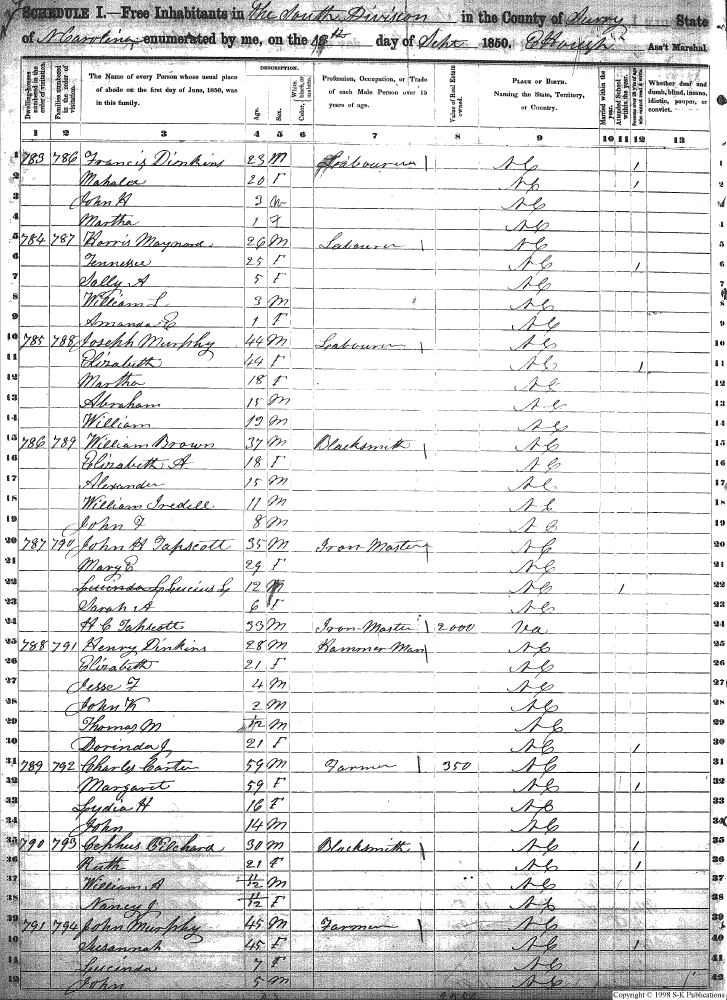 SCHEDULE I.—Free Inhabitants in The South Division in the County of Surry State
of N Carolina enumerated by me, on the day of Sept 1850. Ass't Marshal.
Dwelling-houses numbered in the order of visitation.
Families numbered in the order of visitation.
The Name of every Person whose usual place of abode on the first day of June, 1850, was in this family.
DESCRIPTION.
Age.
Sex.
White, black, or mulatto.
Color,
Profession, Occupation, or Trade of each Male Person over 15 years of age.
Value of Real Estate owned.
PLACE OF BIRTH. Naming the State, Territory, or Country.
Married within the year.
Attended School within the year.
Persons over 20 y'rs of age who cannot read & write.
Whether deaf and dumb, blind, insane, idiotic, pauper, or convict.
1 2 3 4 5 6 7 8 9 10 11 12 13
1 783 786 Francis Dinkins 23 M Labourer NC / 1
2 Mahala 20 F NC / 2
3 John H 3 NC 3
4 Martha 1 F NC 4
5 784 787 Harris Maynard 26 M Labourer NC 5
6 Tennessee 25 F NC / 6
7 Sally A 5 F NC 7
8 William L 3 M NC 8
9 Amanda E 1 F NC 9
10 785 788 Joseph Murphy 44 M Labourer NC 10
11 Elizabeth 44 F NC / 11
12 Martha 18 F NC 12
13 Abraham 15 M NC 13
14 William 12 M NC 14
15 786 789 William Brown 37 M Blacksmith NC 15
16 Elizabeth A 18 F NC 16
17 Alexander 15 M NC 17
18 William Iredell 11 M NC 18
19 John F 8 M NC 19
20 787 790 John H Tapscott 35 M Iron Master NC 20
21 Mary E 29 F NC 21
22 Lucinda L Lucius L 12 M NC / 22
23 Sarah A 6 F NC 23
24 H C Tapscott 33 M Iron Master 2000 Va 24
25 788 791 Henry Dinkins 28 M Hammer Man NC 25
26 Elizabeth 21 F NC 26
27 Jesse F 4 M NC 27
28 John K 2 M NC 28
29 Thomas M /12 M NC 29
30 Dorinda J 21 F NC / 30
31 789 792 Charles Carter 59 M Farmer 350 NC 31
32 Margaret 59 F NC / 32
33 Lydia H 16 F NC 33
34 John 14 M NC 34
35 790 793 Cephus Pilchard 30 M Blacksmith NC / 35
36 Ruth 21 F NC / 36
37 William A 11/12 M NC 37
38 Nancy J 11/12 F NC 38
39 791 794 John Murphy 45 M Farmer NC 39
40 Susannah 45 F NC / 40
41 Lucinda 7 F NC 41
42 John 5 M NC 42
Copyright © 1998 S-K Publications